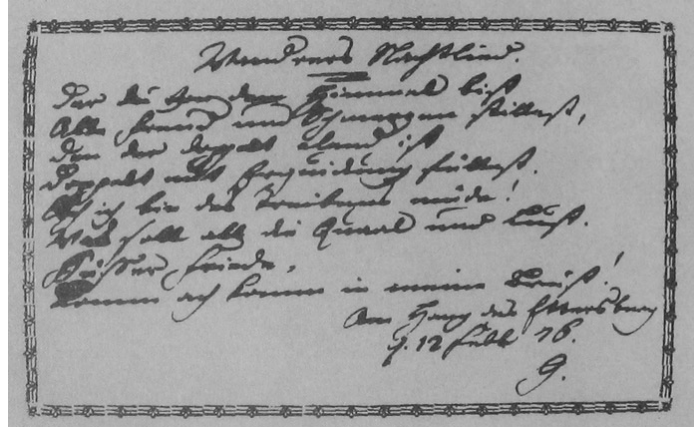 Wandrers Nachtlied.
Der du von dem Himmel bist
Alle Freud und Schmerzen stillest,
Den der doppelt elend ist
Doppelt mit Erquickung füllest.
Ach ich bin des Treibens müde!
Was soll all die Quaal und Lust.
Süsser Friede,
Komm ach komm in meine Brust!
Am Hang des Ettersberg
d. 12 Febr 76.
G.